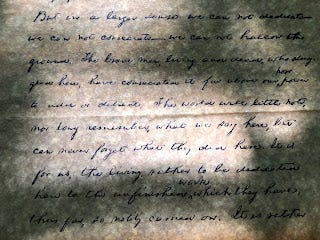 But in a larger sense we can not dedicate
we can not consecrate we can not hallow this
ground. The brave men, living and dead, who strug
gled here, have consecrated it far above our poor power
to add or detract. The world will little note,
nor long remember, what we say here, but
can never forget what they did here. It is
for us, the living, rather to be dedicated
here to the unfinished work which they have,
thus far, so nobly carried on. It is rather